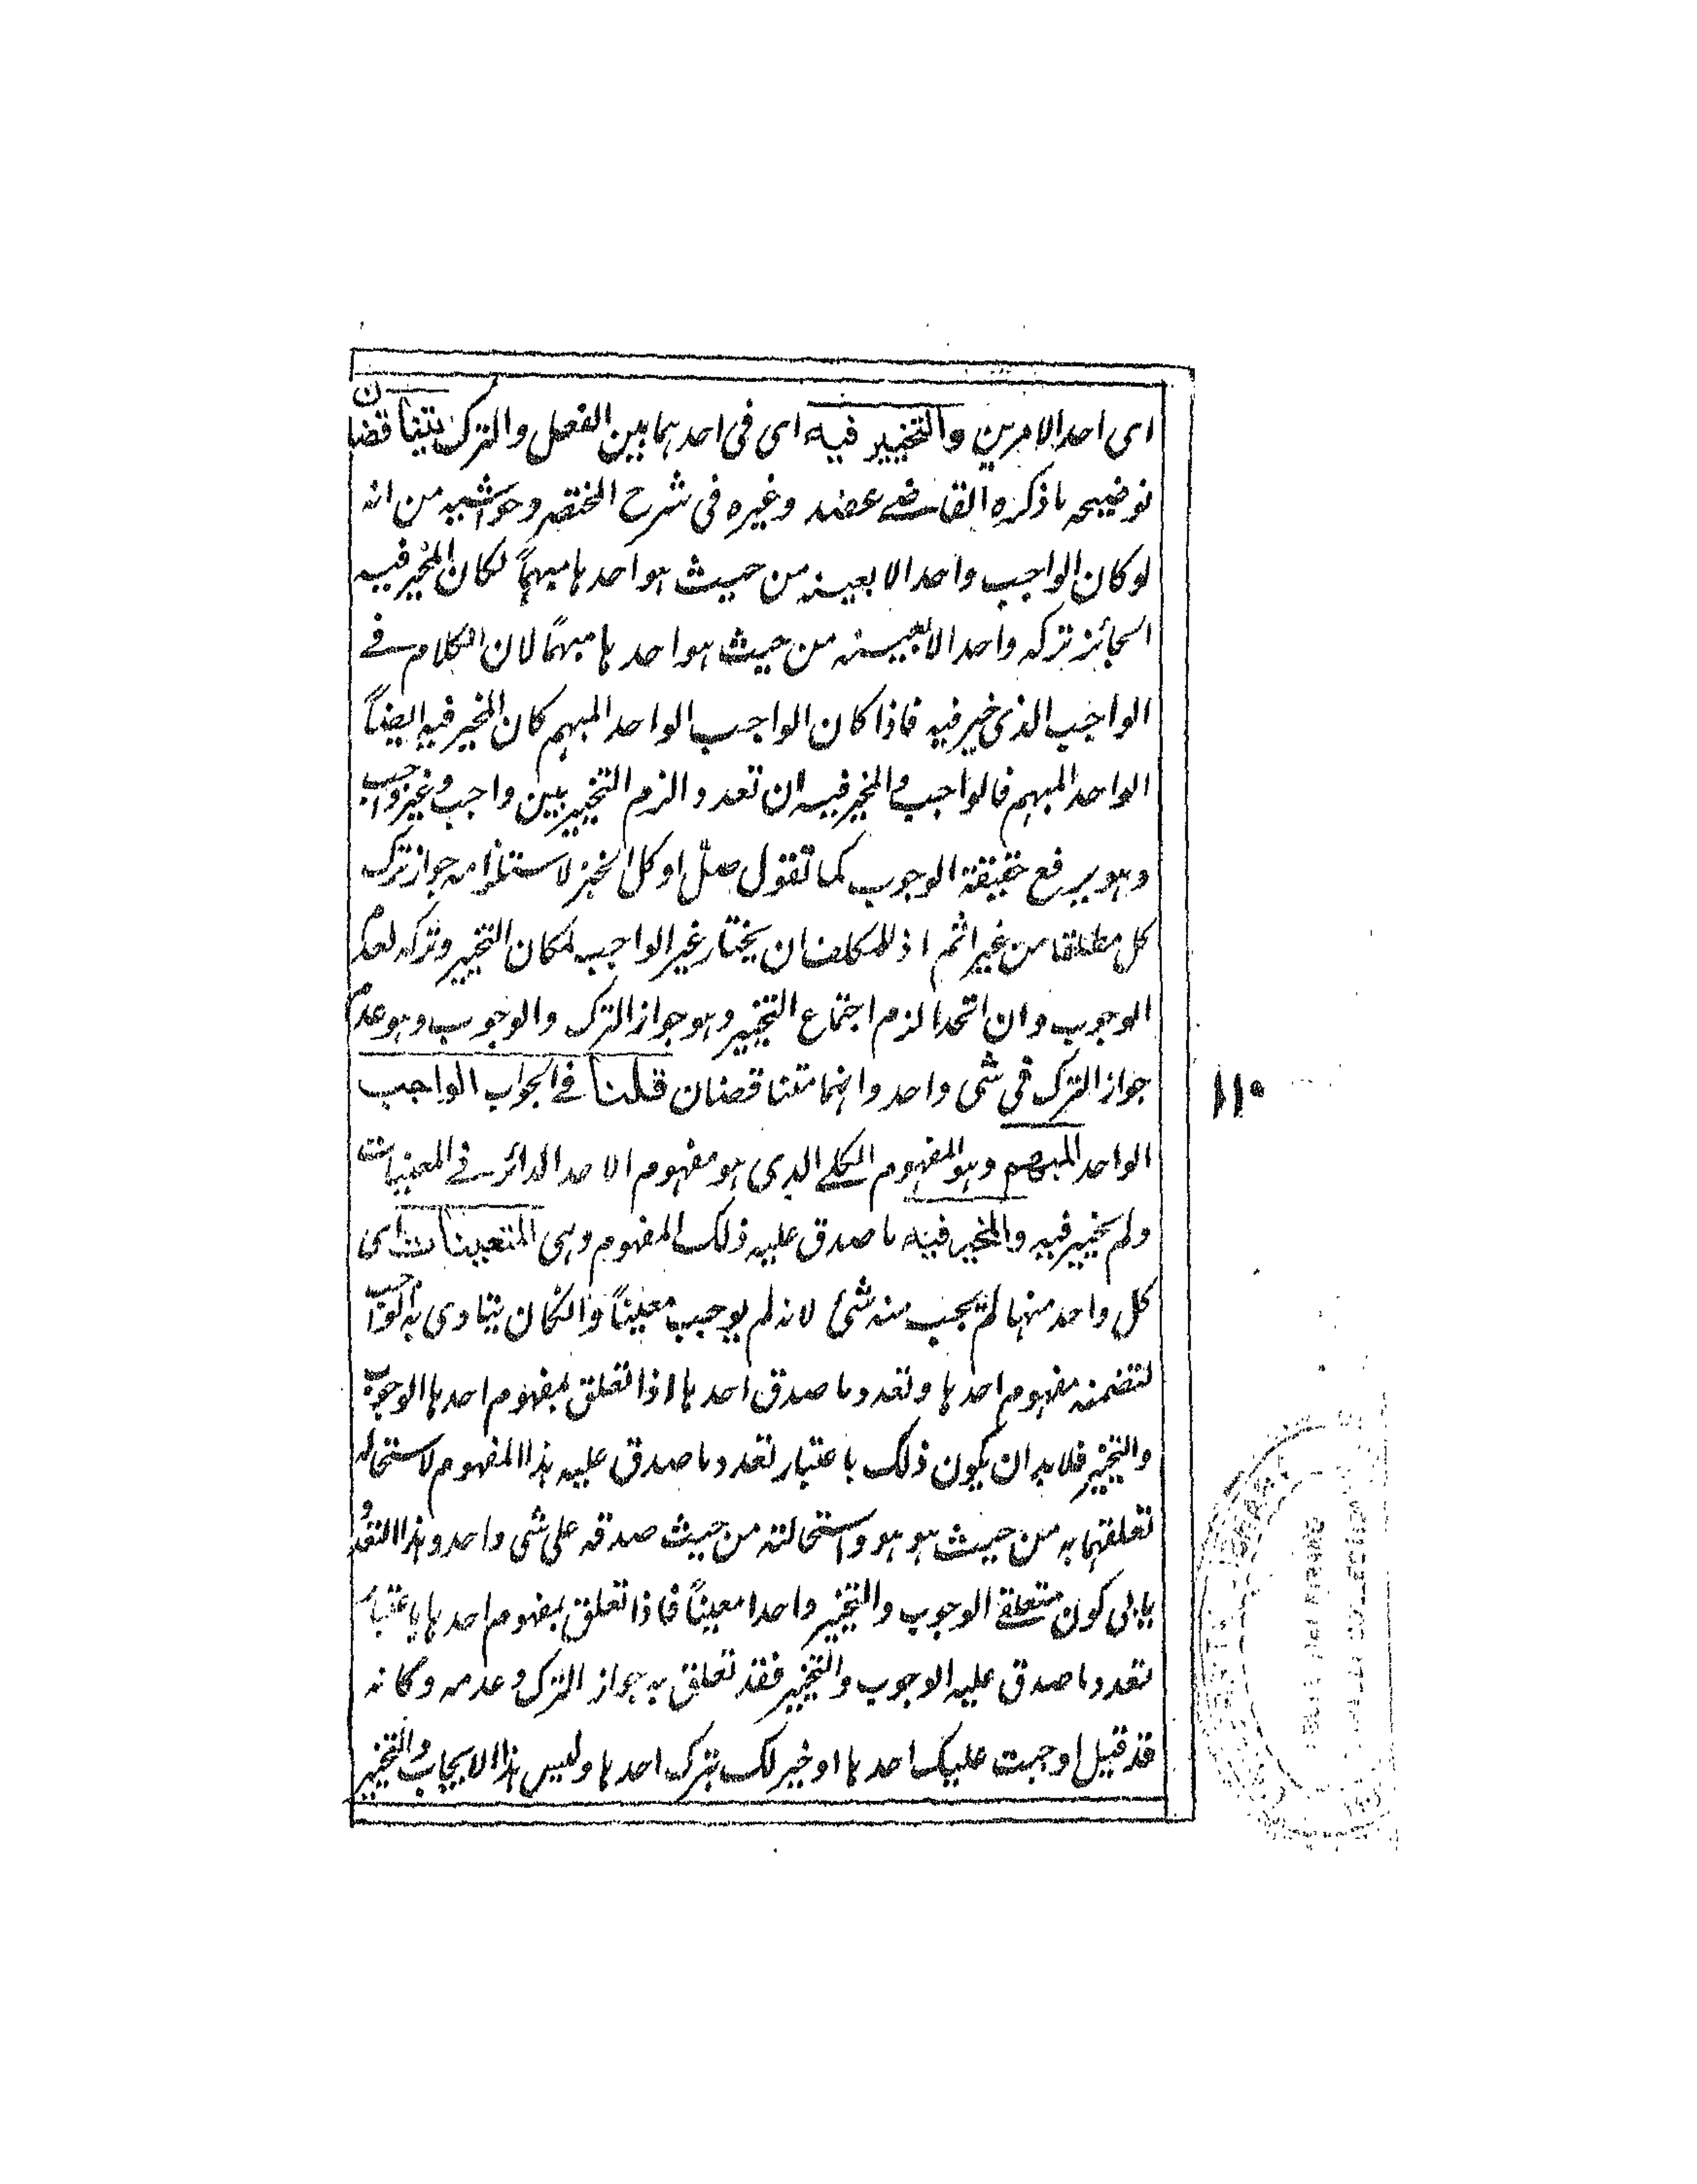 اى احد الامرين والتخيير فيه اى فى احدهما بين الفعل والترك يتناقضان
توضيحه ما ذكره القاضى عضد وغيره فى شرح المختصر وحواشيه من انه
لو كان الواجب واحدا لا بعينه من حيث هو احدها مبهماً لكان المخير فيه
الجائز تركه واحدا لا بعينه من حيث هو احدها مبهماً لان الكلام فى
الواجب الذى خير فيه فاذا كان الواجب الواحد المبهم كان المخير فيه ايضاً
الواحد المبهم فالواجب والمخير فيه ان تعددا لزم التخيير بين واجب وغير واجب
وهو يرفع حقيقة الوجوب كما تقول صلّ او كل الخبز لاستلزامه جواز ترك
كل مطلقا من غير اثم اذ للمكلف ان يختار غير الواجب لمكان التخيير وتركه لعدم
الوجوب وان اتحدا لزم اجتماع التخيير وهو جواز الترك والوجوب وهو عدم
جواز الترك فى شى واحد وانهما متناقضان قلنا فى الجواب الواجب
الواحد المبهم وهو المفهوم الكلى الذى هو مفهوم الاحد الدائر فى المعينات
ولم يخير فيه والمخير فيه ما صدق عليه ذلك المفهوم وهى المتعينات اى
كل واحد منها لم يجب منه شئ لانه لم يوجب معيناً وانكان يتادى به الواجب
لتضمنه مفهوم احدها وتعدد ما صدق احدها اذا تعلق بمفهوم احدها الوجوب
والتخيير فلا بد ان يكون ذلك باعتبار تعدد ما صدق عليه هذا المفهوم لاستحاله
تعلقهما به من حيث هو هو واستحالته من حيث صدقه على شى واحد وهذا التعدد
يابى كون متعلقى الوجوب والتخيير واحدا معيناً فاذا تعلق بمفهوم احدها باعتبار
تعدد ما صدق عليه الوجوب والتخيير فقد تعلق به جواز الترك وعدمه وكانه
قد قيل اوجبت عليك احدها او خير لك بترك احدها وليس هذا الايجاب والتخيير
١١٠